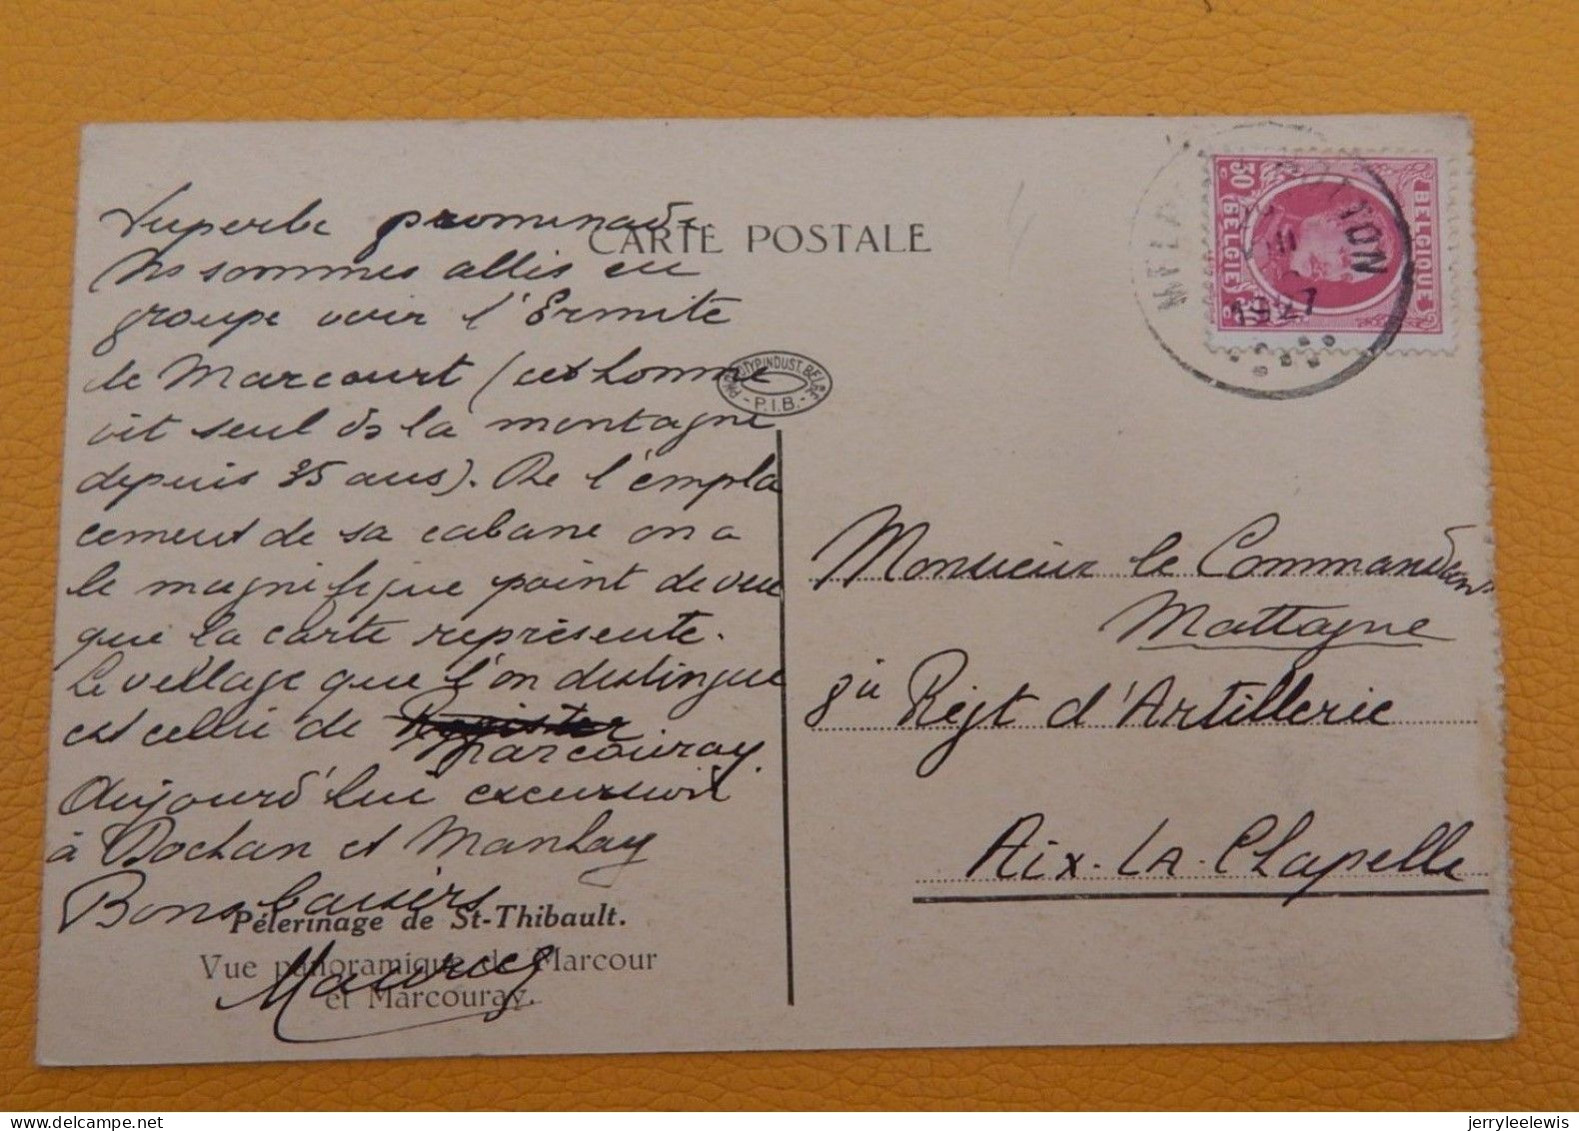 CARTE POSTALE
Superbe promenade
Ns sommes allés en
groupe voir l'Ermite
de Marcourt (cet homme
vit seul ds la montagne
depuis 35 ans). De l'empla
cement de sa cabane on a
le magnifique point de vue
que la carte représente.
Le village que l'on distingue
est celui de
Marcouray.
Aujourd'hui excursion
à Dochan et Manhay
Bons baisers
Maurice
Pélerinage de St-Thibault.
Vue panoramique de Marcour
et Marcouray.
PHOTOTYP. INDUST. BELGE
- P.I.B. -
BELGIQUE
BELGIË
30
1927
Monsieur le Commandant
Mattagne
Régt d'Artillerie
Aix-La-Chapelle
www.delcampe.net
jerryleelewis